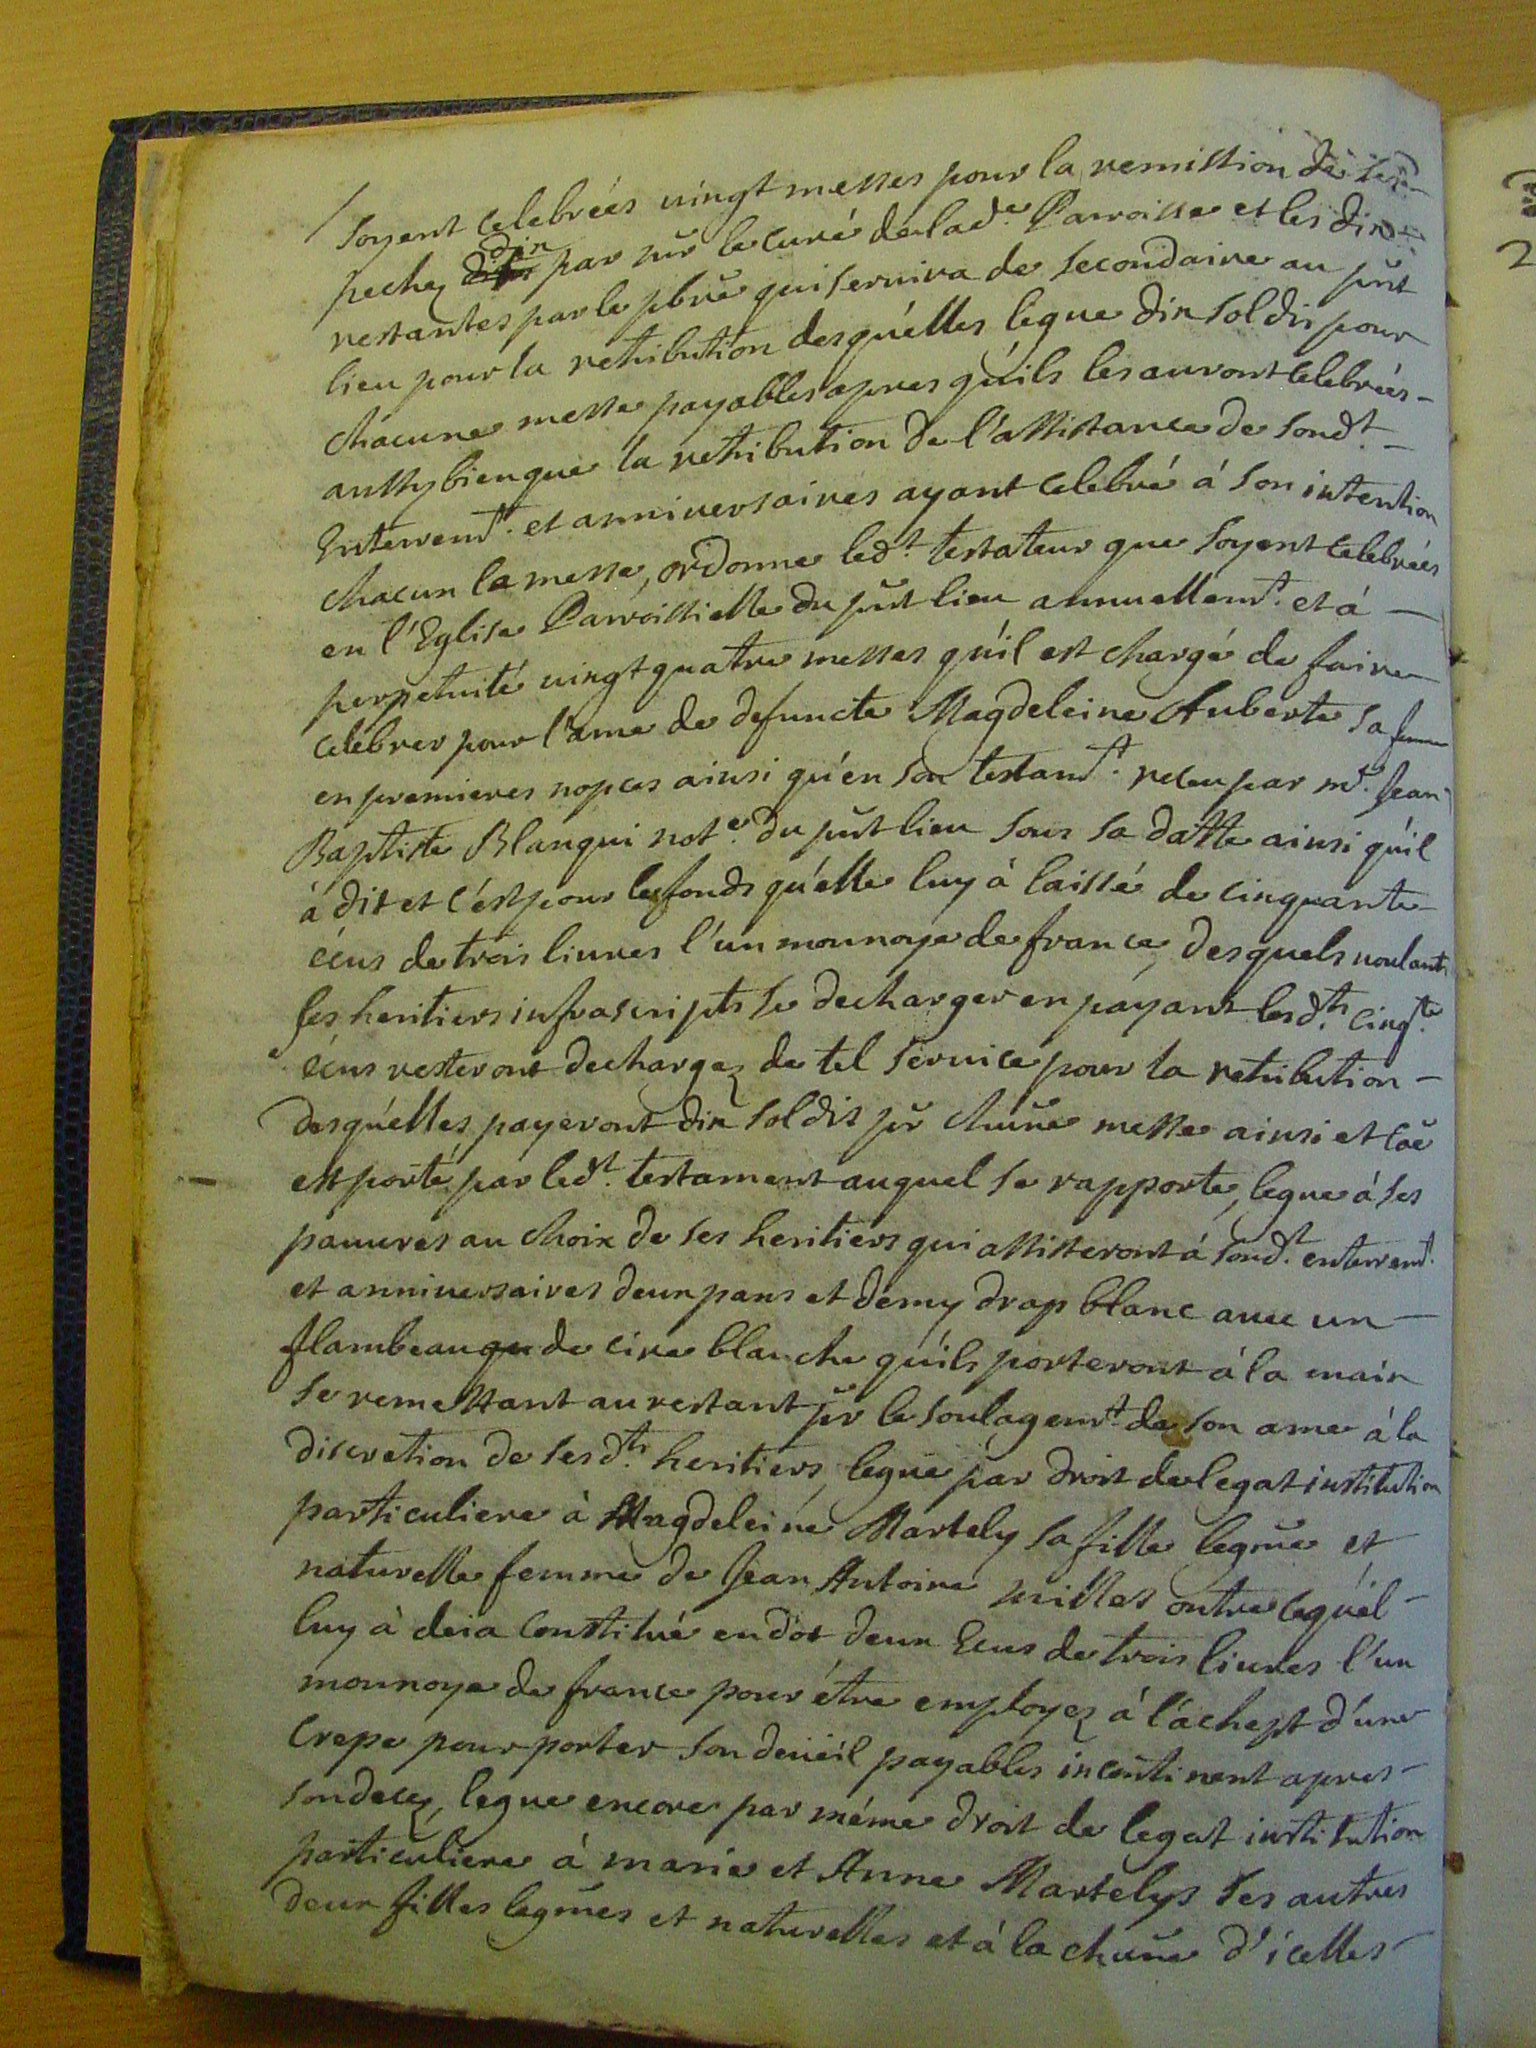 Soyent celebrées vingt messes pour la remission de ses
pechez dix par mr le curé de lad.e Parroisse et les dix
restantes par le pbre qui servira de secondaire au pnt
lieu pour la retribution desquelles legue dix soldis pour
chacune messe payables apres qu'ils les auront celebrées -
aussy bien que la retribution de l'assistance de sond.t -
Enterrem.t et anniversaires ayant celebré á son intention
chacun la messe, ordonne led.t testateur que soyent celebrées
en l'Eglise Parroissielle du pnt lieu annuellem.t et á -
perpetuité vingt quatre messes qu'il est chargé de faire
celebrer pour l'ame de defuncte Magdeleine Auberte sa femme
en premieres nopces ainsi qu'en son testam.t receu par m.e Jean
Baptiste Blanqui not.e du pnt lieu sous sa datte ainsi qu'il
á dit et c'est pour les fonds qu'elle luy à laissé de cinquante
écus de trois livres l'un monnoye de france, desquels voulant
ses heritiers infrascripts se decharger en payant lesd.ts cinq.te
écus resteront dechargez de tel service pour la retribution -
desquélles payeront dix soldis pr chune messe ainsi et coe
est porté par led.t testament auquel se rapporte, legue á ses
pauvres au choix de ses heritiers qui assisteront á sond.t enterrem.t
et anniversaires deux pans et demy drap blanc avec un -
flambeau de cire blanche qu'ils porteront á la main
se remettant au restant pr le soulagem.t de son ame á la
discretion de sesd.ts heritiers, legue par droit de legat institution
particuliere à Magdeleine Martely sa fille legme et
naturelle femme de Jean Antoine outre cequél -
luy à deia constitué en dot deux Ecus de trois livres l'un
monnoye de france pour étre employez á l'áchept d'une
crepe pour porter son deüéil payables incontinent apres -
son decez, legue encore par méme droit de legat institution
particuliere á marie et Anne Martelys ses autres
deux filles legmes et naturelles et á la chune d'icelles -